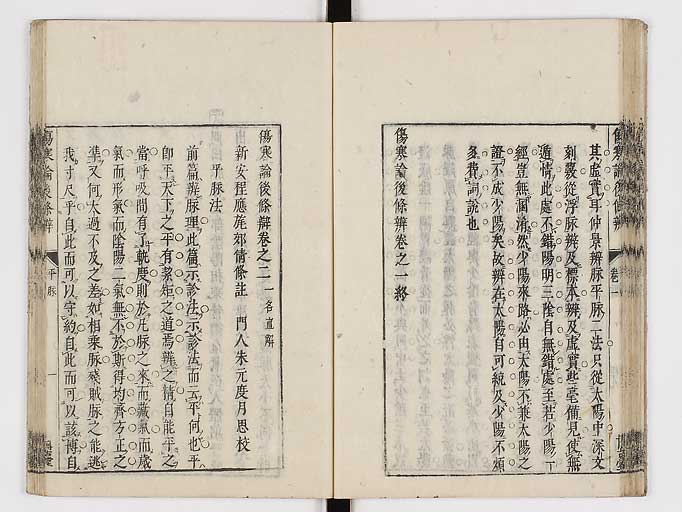 傷寒論後條辨
卷一
其虛實耳仲景辨脉平脉二法只從太陽中深文
刻覈從浮脉辨及標本辨及虛實些毫備見使無
遁情此處不錯陽明三陰自無錯處至若少陽一
經豈無淵淆然少陽來路必由太陽不兼太陽之
證不成少陽矣故辨在太陽自可統及少陽不煩
多費詞說也
傷寒論後條辨卷之一終
傷寒論後條辨卷之二 一名直解
新安程應旄郊倩條註 門人朱元度月思校
平脉法
前篇辨脉理此篇示診法示診法而云平何也平
即平天下之平有絜矩之道焉辨之情自能平之
當呼吸間有了軌度則於凡脉之來而藏氣而歲
氣而形氣而陰陽二氣無不於斯得均齊方正之
準又何太過不及之差如相乘脉殘賊脉之能逃
我寸尺乎自此而可以守約自此而可以該博自
傷寒論後條辨
平脉
一